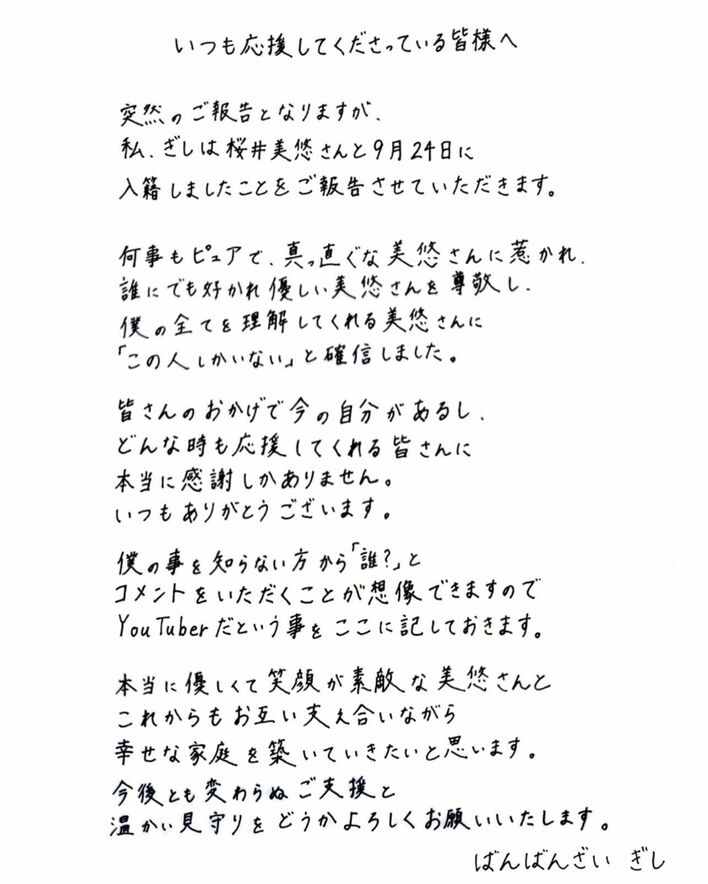 いつも応援してくださっている皆様へ
突然のご報告となりますが、
私、ぎしは桜井美悠さんと9月24日に
入籍しましたことをご報告させていただきます。
何事もピュアで、真っ直ぐな美悠さんに惹かれ、
誰にでも好かれ優しい美悠さんを尊敬し、
僕の全てを理解してくれる美悠さんに
「この人しかいない」と確信しました。
皆さんのおかげで今の自分があるし、
どんな時も応援してくれる皆さんに
本当に感謝しかありません。
いつもありがとうございます。
僕の事を知らない方から「誰?」と
コメントをいただくことが想像できますので
YouTuberだという事をここに記しておきます。
本当に優しくて笑顔が素敵な美悠さんと
これからもお互い支え合いながら
幸せな家庭を築いていきたいと思います。
今後とも変わらぬご支援と
温かい見守りをどうかよろしくお願いいたします。
ばんばんざい ぎし